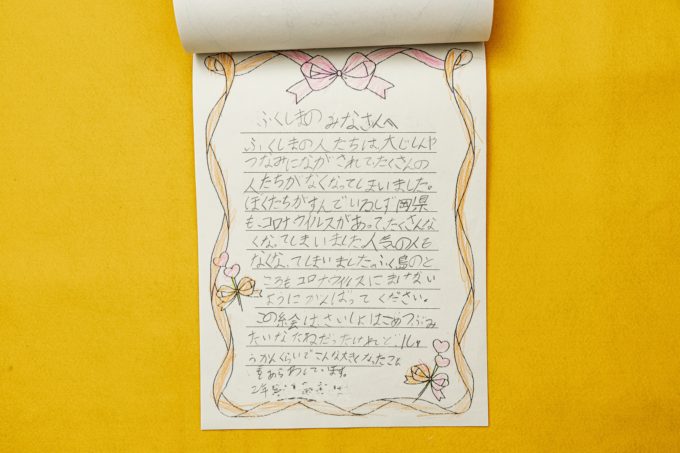 ふくしまの みなさんへ
ふくしまの人たちは、大じしんや
つなみにながされて、たくさんの
人たちがなくなってしまいました。
ぼくたちがすんでいるしず岡県
も、コロナウイルスがあって、たくさんな
くなってしまいました。人気の人も
なくなってしまいました。ふく島のと
ころもコロナウイルスにまけない
ようにがんばってください。
この絵は、さいしょはこめつぶみ
たいなたねだったけれど、1しゅ
うかんくらいでこんな大きくなったこと
をあらわしています。